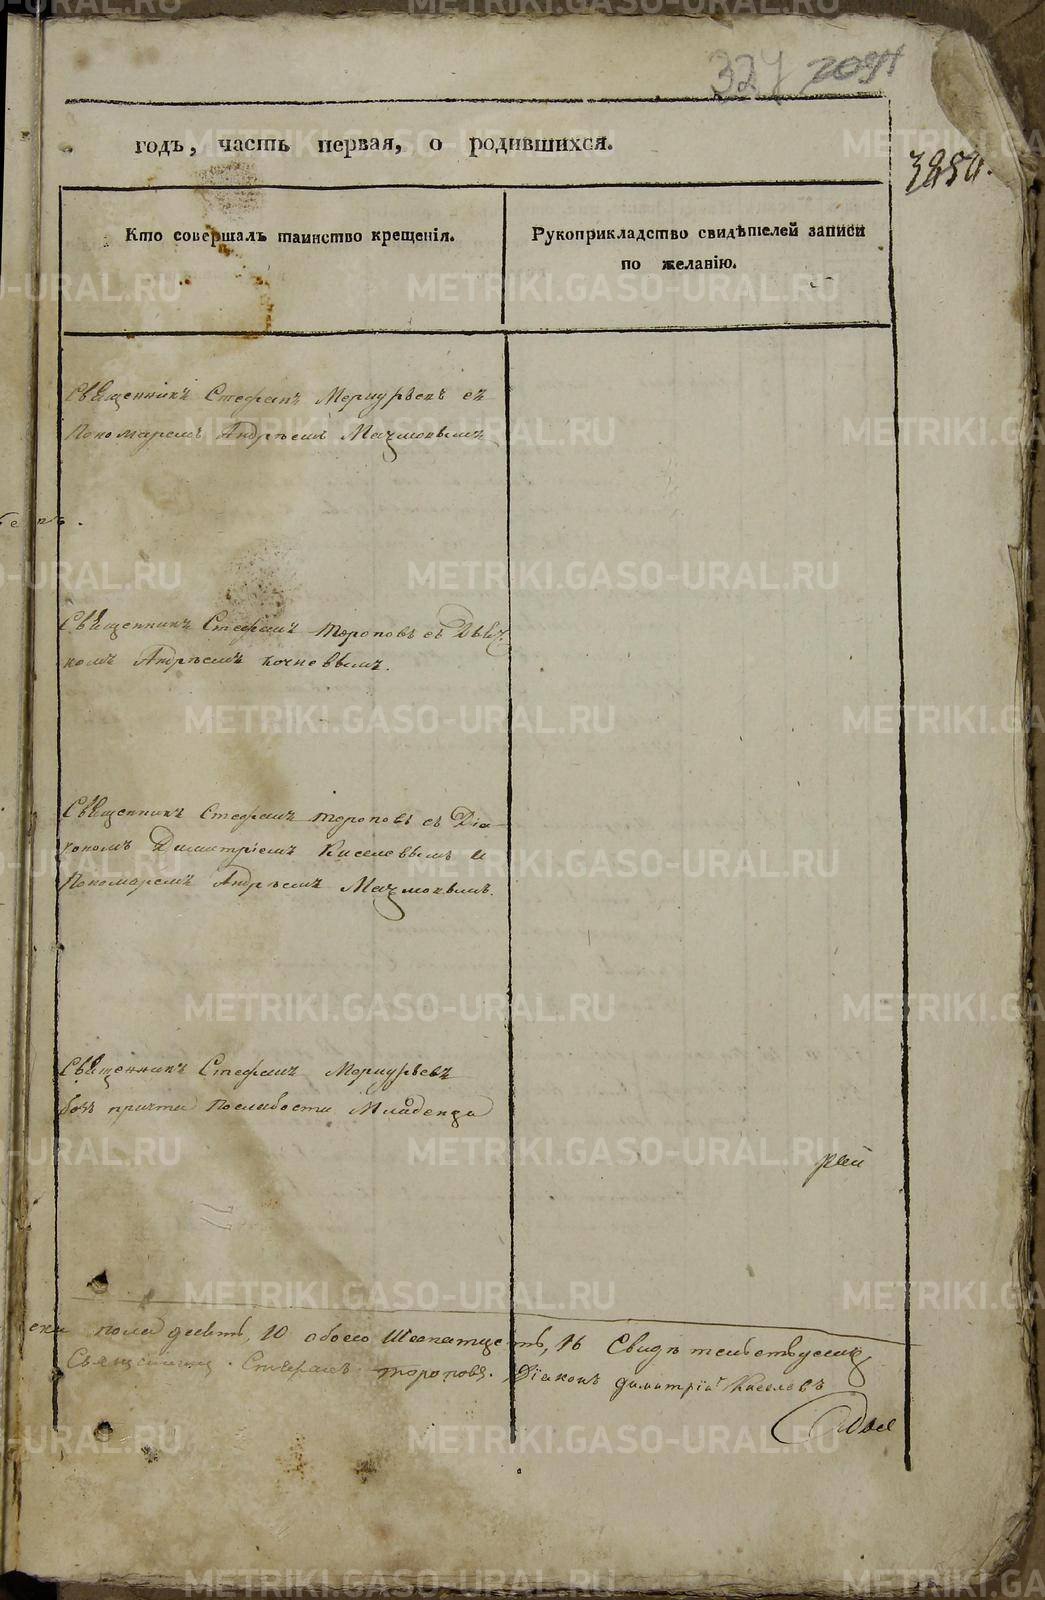 327 2094
годъ, часть первая, о родившихся.
3850.
Кто совершалъ таинство крещенія.
Рукоприкладство свидѣтелей записи
по желанію.
Священникъ Стефанъ Меркурьевъ съ
Пономаремъ Андреемъ
Священникъ Стефанъ Тороповъ съ Дьяч-
комъ Андреемъ Кочневымъ.
Священникъ Стефанъ Тороповъ съ Діа-
кономъ Димитріемъ Киселевымъ и
Пономаремъ Андреемъ
Священникъ Стефанъ Меркурьевъ
безъ причта Послабости Младенца
рей
пола 10 обоего Шеснатцеть, 16 Свидѣтельствуемъ
Священникъ Стефанъ Тороповъ. Діаконъ Димитрій Киселевъ
METRIKI.GASO-URAL.RU